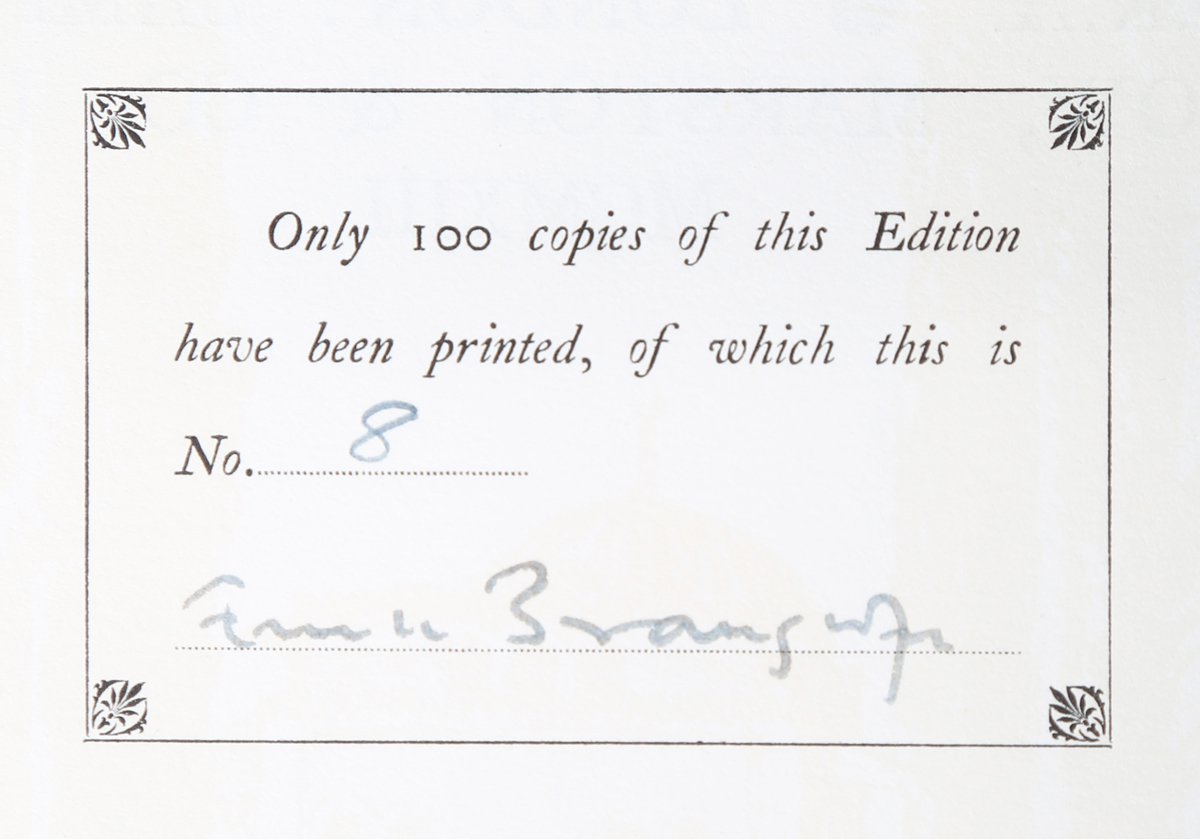 Only 100 copies of this Edition
have been printed, of which this is
No. 8
Frank Brangwyn